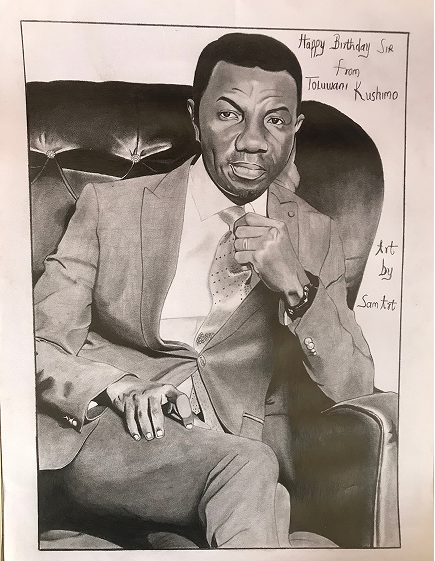 Happy Birthday Sir
from
Toluwani Kushimo
Art
by
Sam Art